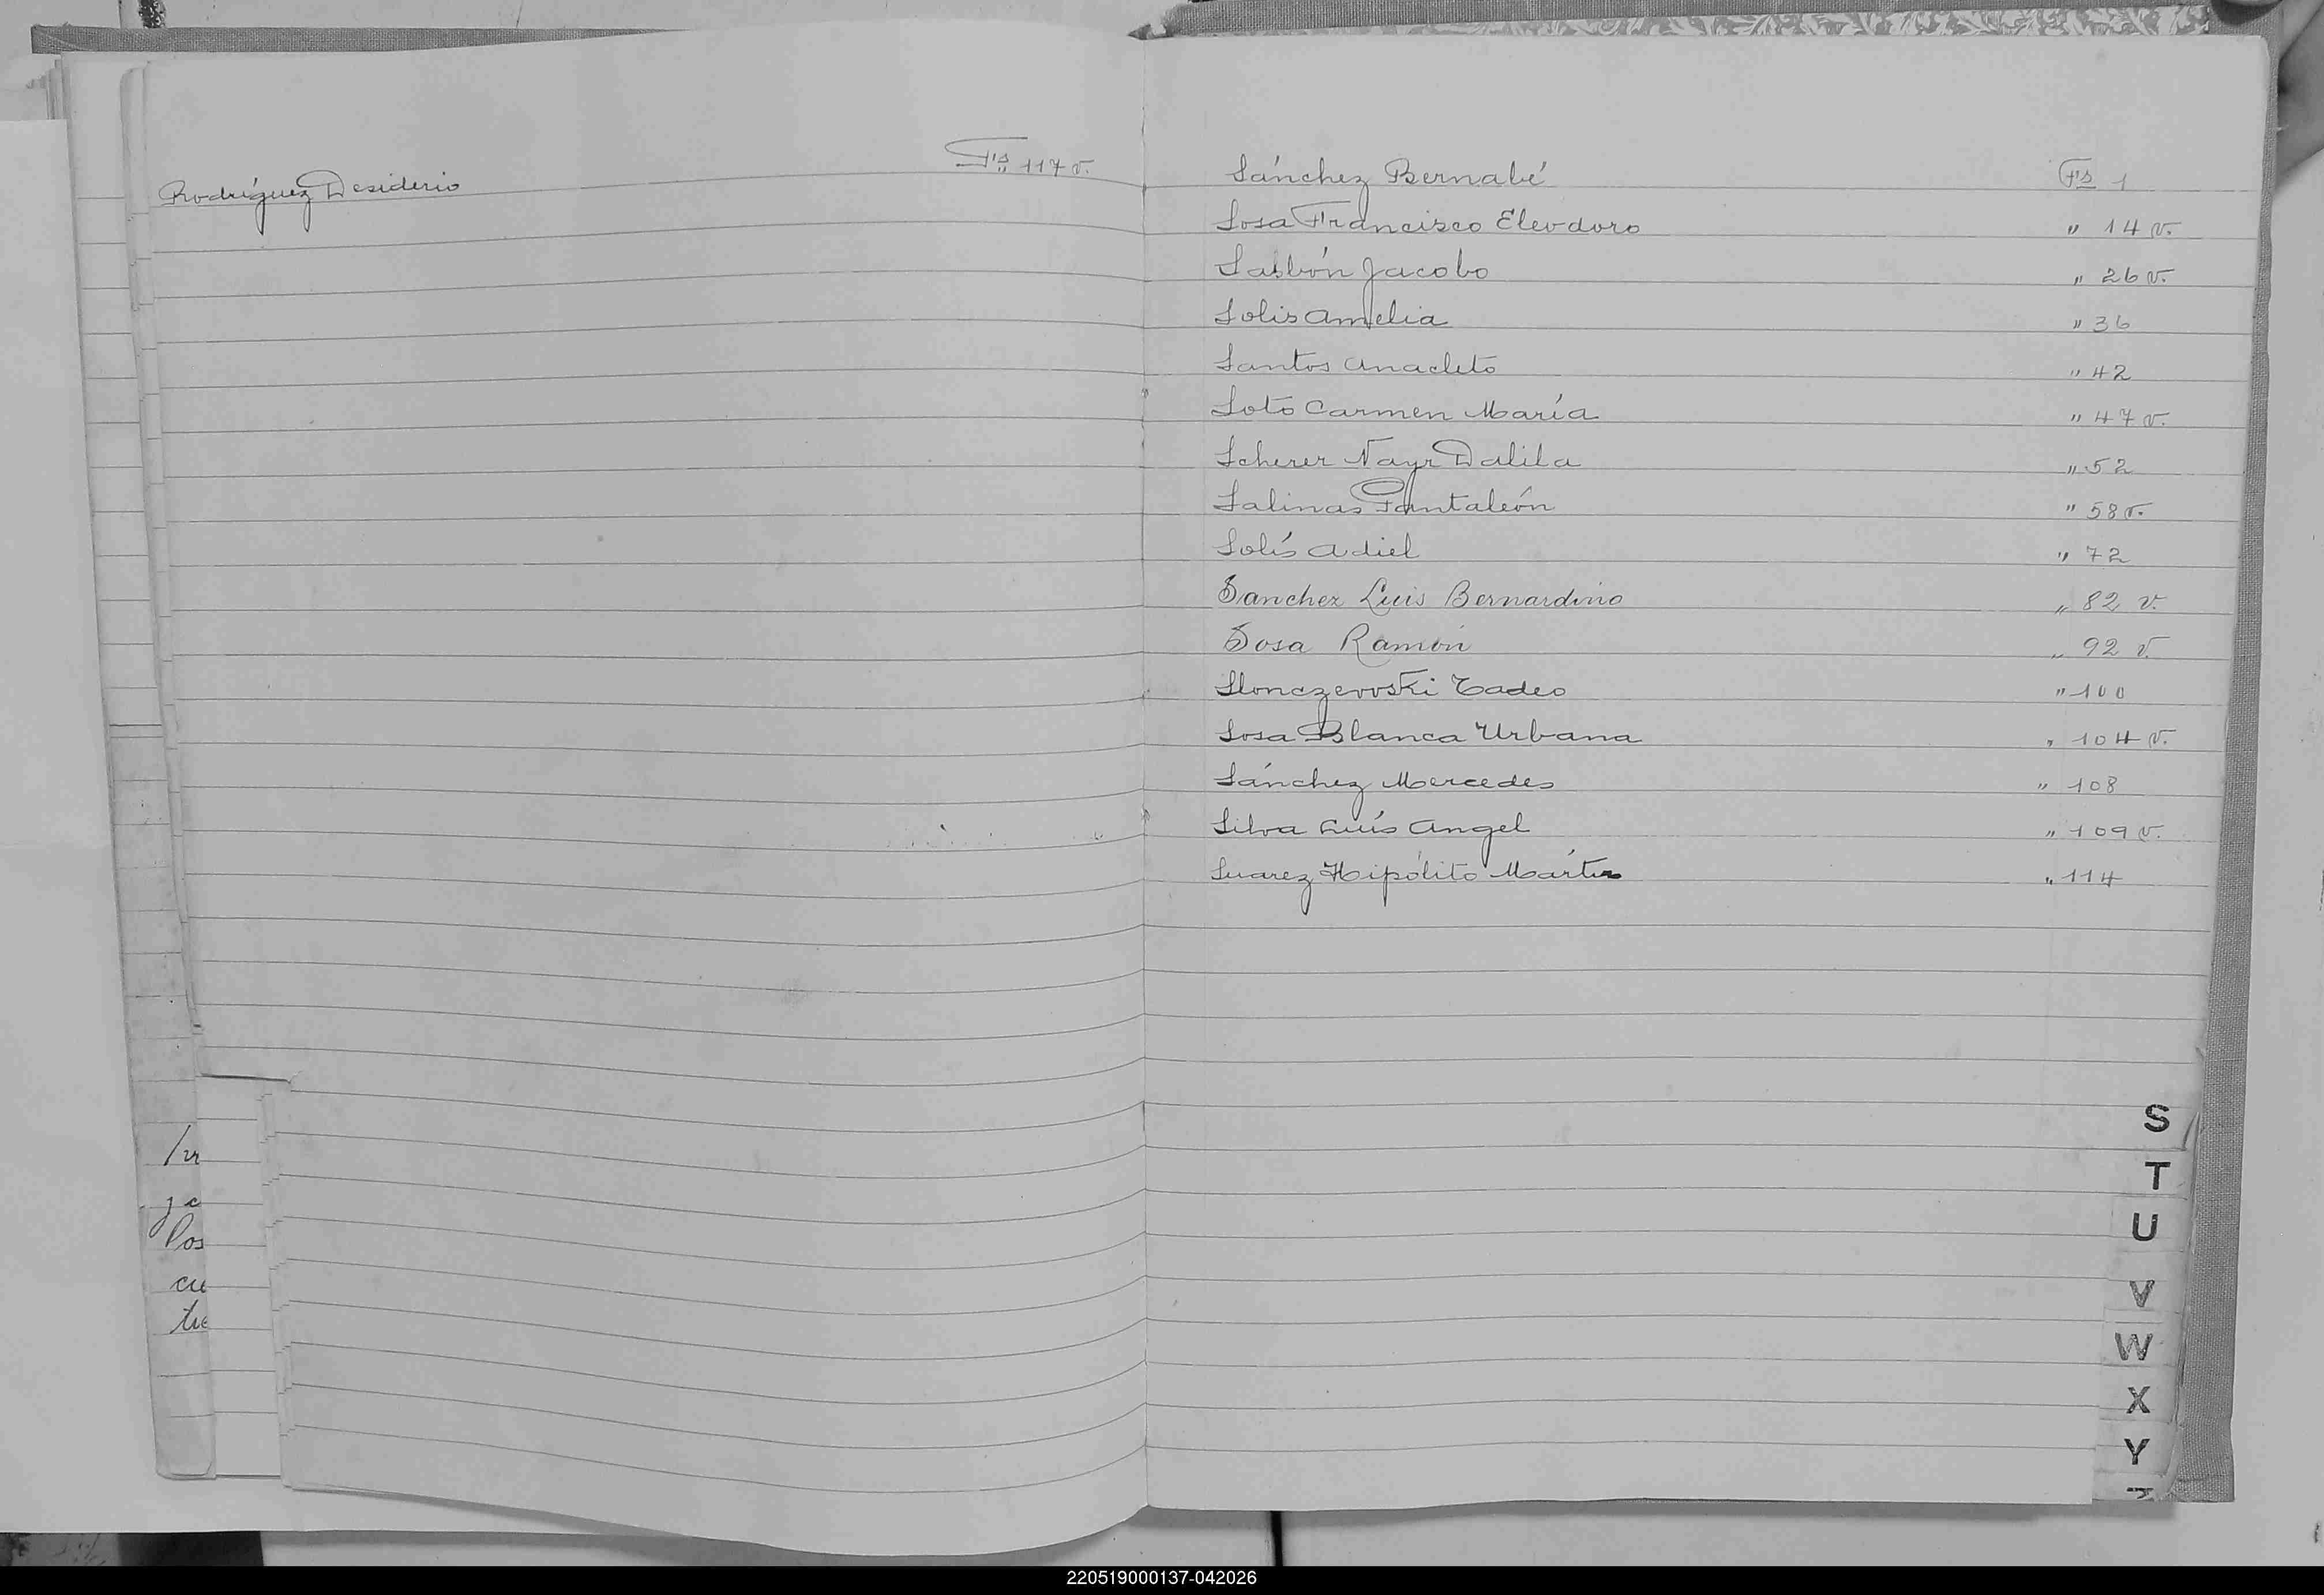 Fs 117 v.
Rodríguez Desiderio
Sánchez Bernabé Fs 1
Sosa Francisco Eleodoro " 14 v.
Sabbón Jacobo " 26 v.
Solis Amelia " 36
Santos Anacleto " 42
Soto Carmen María " 47 v.
Scherer Nayr Dalila " 52
Salinas Pantaleón " 58 v.
Solís Adiel " 72
Sanchez Luis Bernardino " 82 v.
Sosa Ramón " 92 v.
Slonczevvski Tadeo " 100
Sosa Blanca Urbana " 104 v.
Sánchez Mercedes " 108
Silva Luís Angel " 109 v.
Suarez Hipólito Martín " 114
S
T
U
V
W
X
Y
los
cu
220519000137-042026